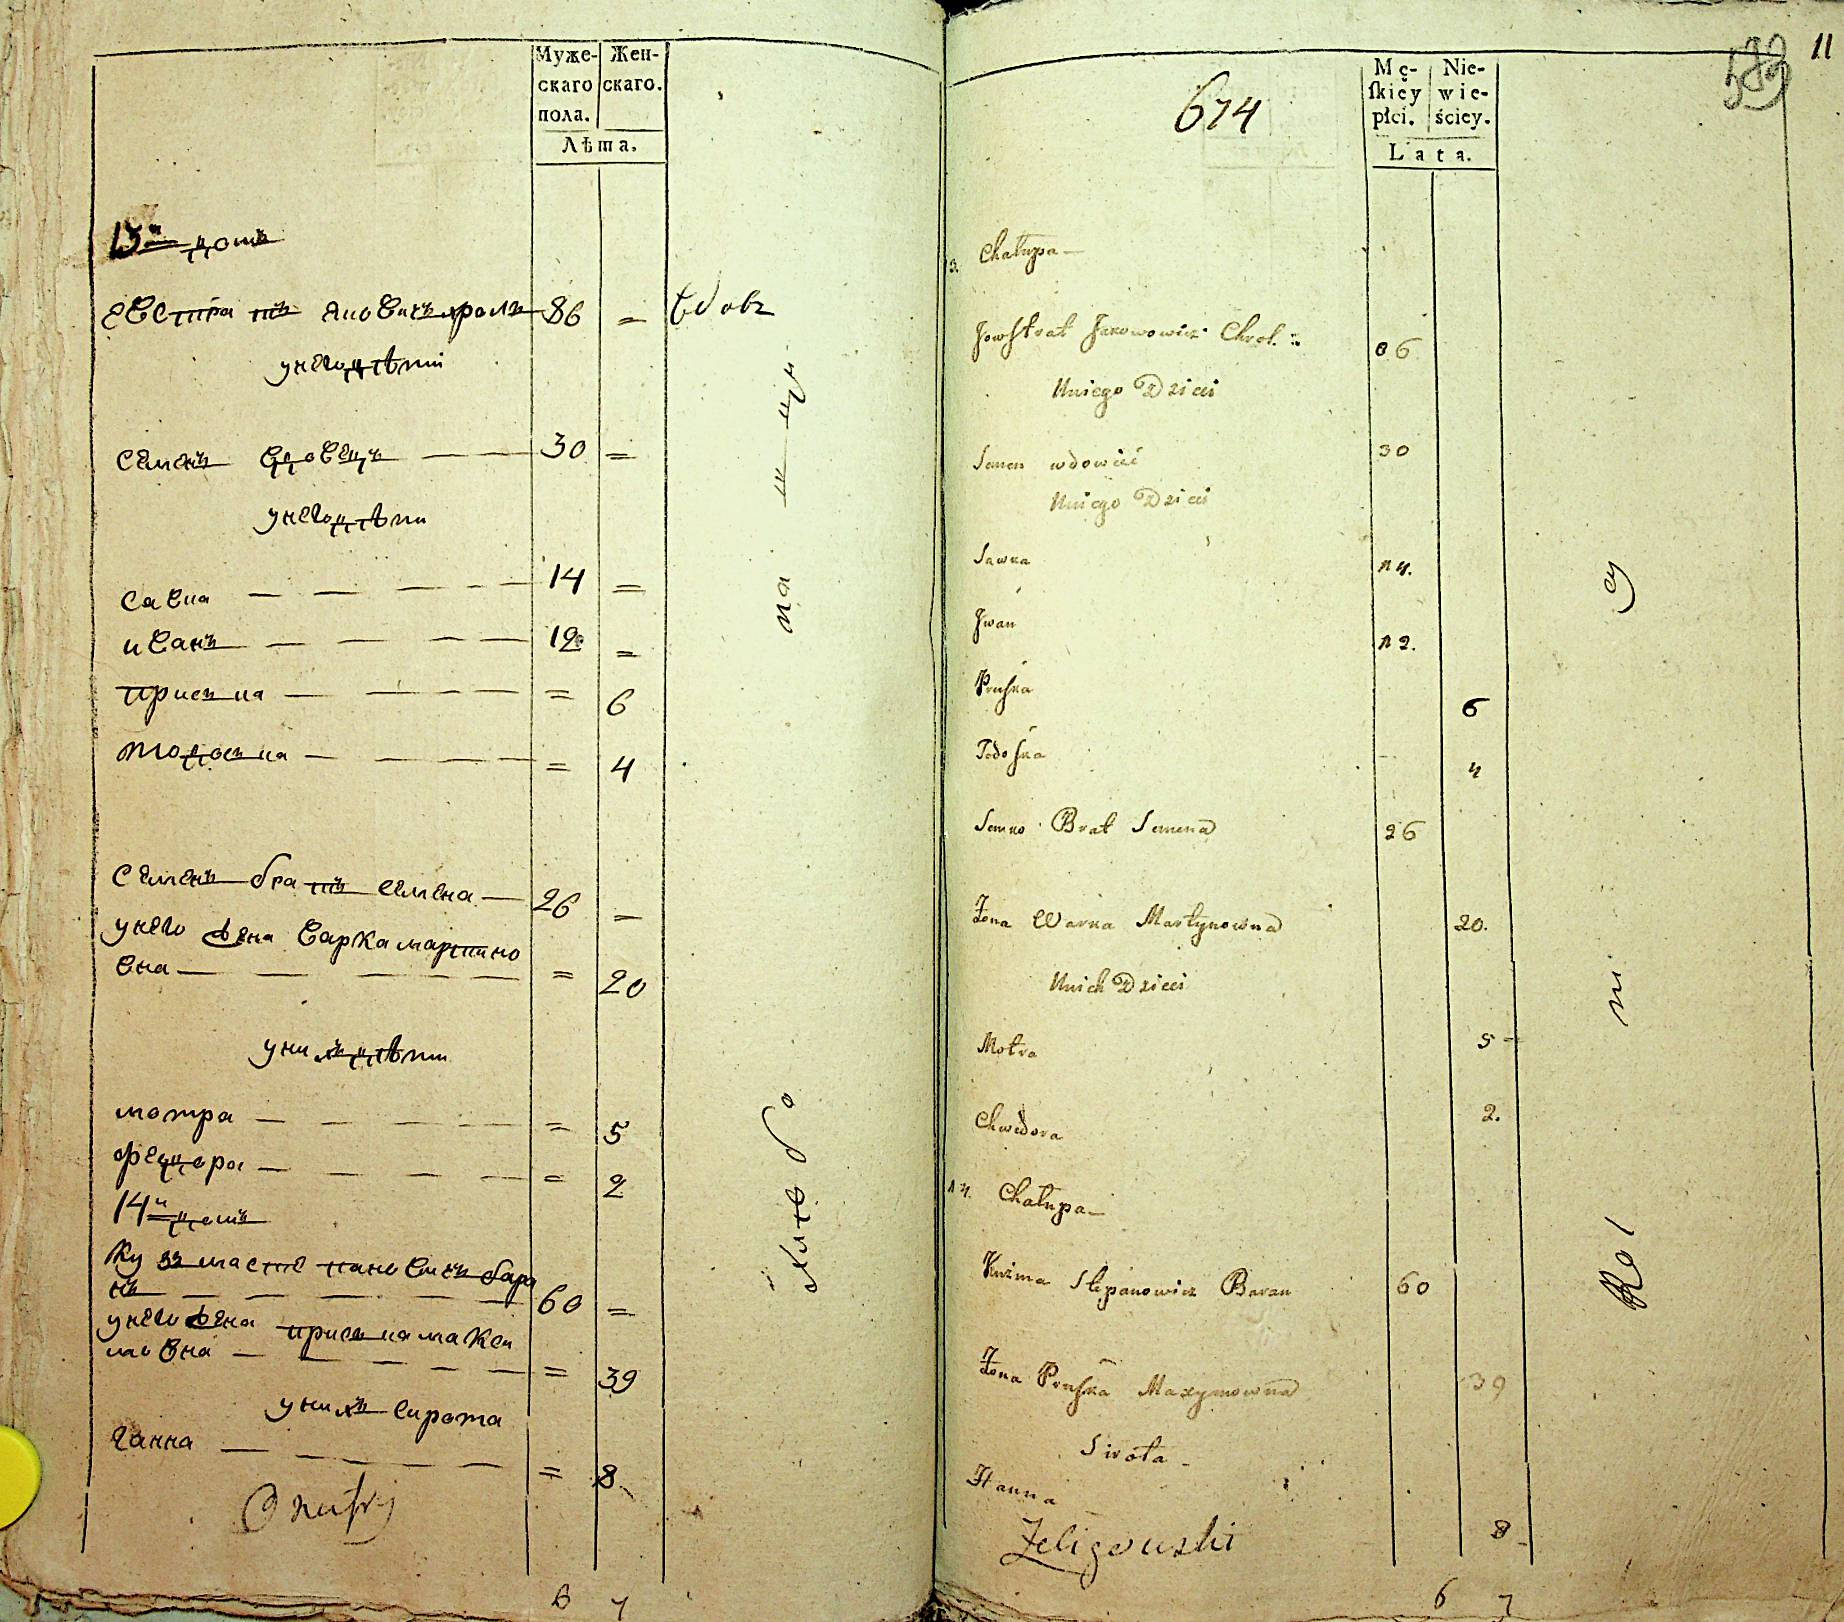 Муже-
скаго
пола.
Жен-
скаго.
Лѣта.
13й домъ
Евстратъ Яковичъ кроль 86 = Вdовъ
у него дѣти
Семенъ вдовецъ — 30 =
у него дѣти
Савка — 14 =
иванъ — 12 =
приська — = 6
тодоська — = 4
Семенъ братъ семена — 26 =
у него жена варка мартино
вна — = 20
у нихъ дѣти
мотра — = 5
федора — = 2
14й домъ
баран
нъ — 60 =
у него жена приська макси
мовна — = 39
у нихъ сирота
ганна — = 8
Onufry
6 7
674
Mę-
ſkiey
płci.
Nie-
wie-
ściey.
Lata.
11
13. Chałupa —
Jowſtrat Jakowowicz Chrol. 86
Uniego Dzieci
Semen wdowiec 30
Uniego Dzieci
Sawka 14.
Jwan 12.
Pruſka 6
Todoſka 4
Semko Brat Semena 26
Żona Warka Martynowna 20.
Unich Dzieci
Motra 5
Chwedora 2.
14. Chałupa —
Kuźma Stepanowicz Baran 60
Żona Pruſka Maxymowna 39
Sirota
Hanna 8
Zeligowski
6 7